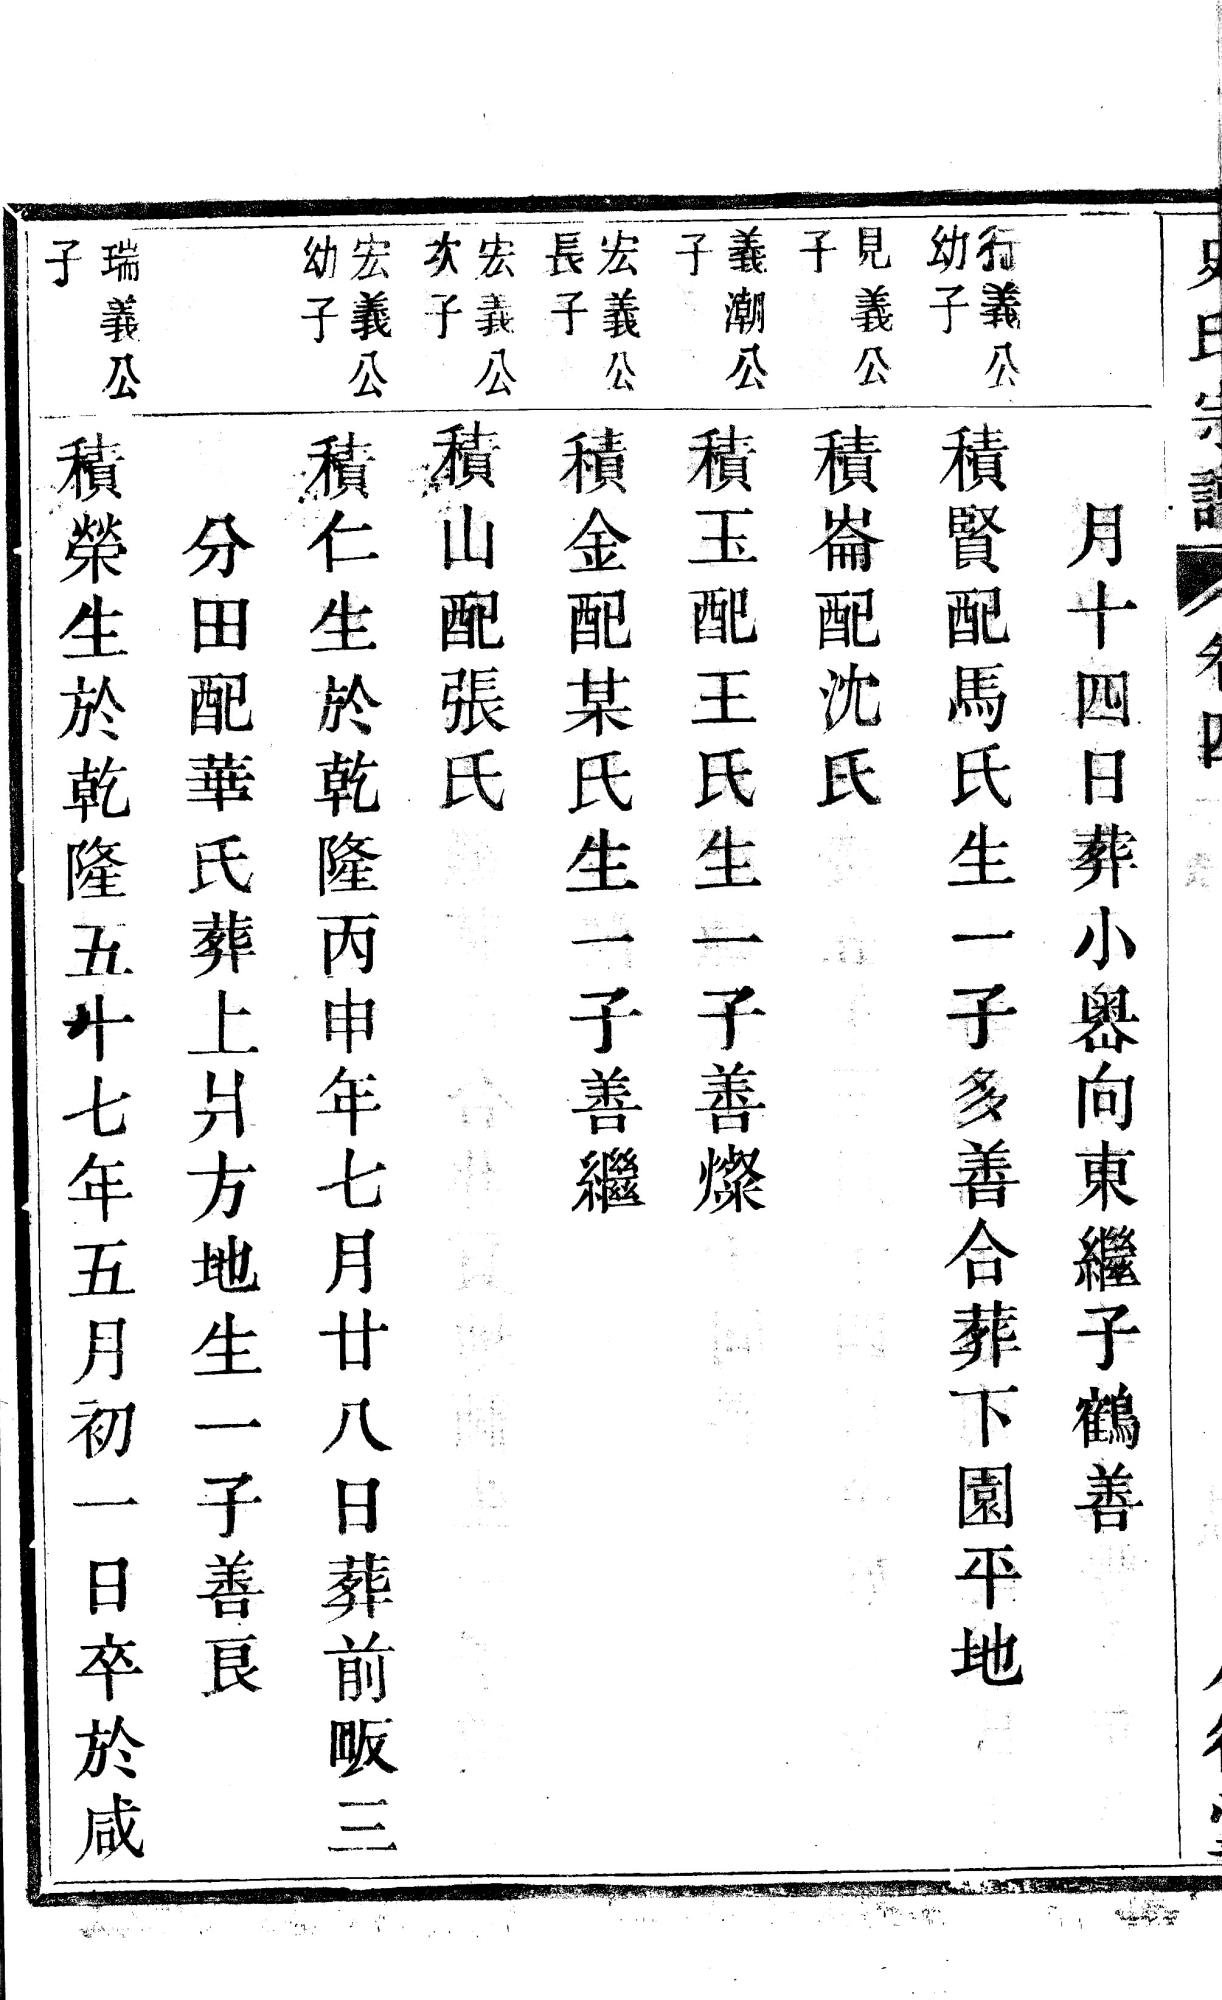 月十四日葬小嶴向東繼子鶴善
行義公
幼子
積賢配馬氏生一子多善合葬下園平地
見義公
子
積崙配沈氏
義潮公
子
積玉配王氏生一子善燦
宏義公
長子
積金配某氏生一子善繼
宏義公
次子
積山配張氏
宏義公
幼子
積仁生於乾隆丙申年七月廿八日葬前畈三
分田配華氏葬上爿方地生一子善良
瑞義公
子
積榮生於乾隆五十七年五月初一日卒於咸